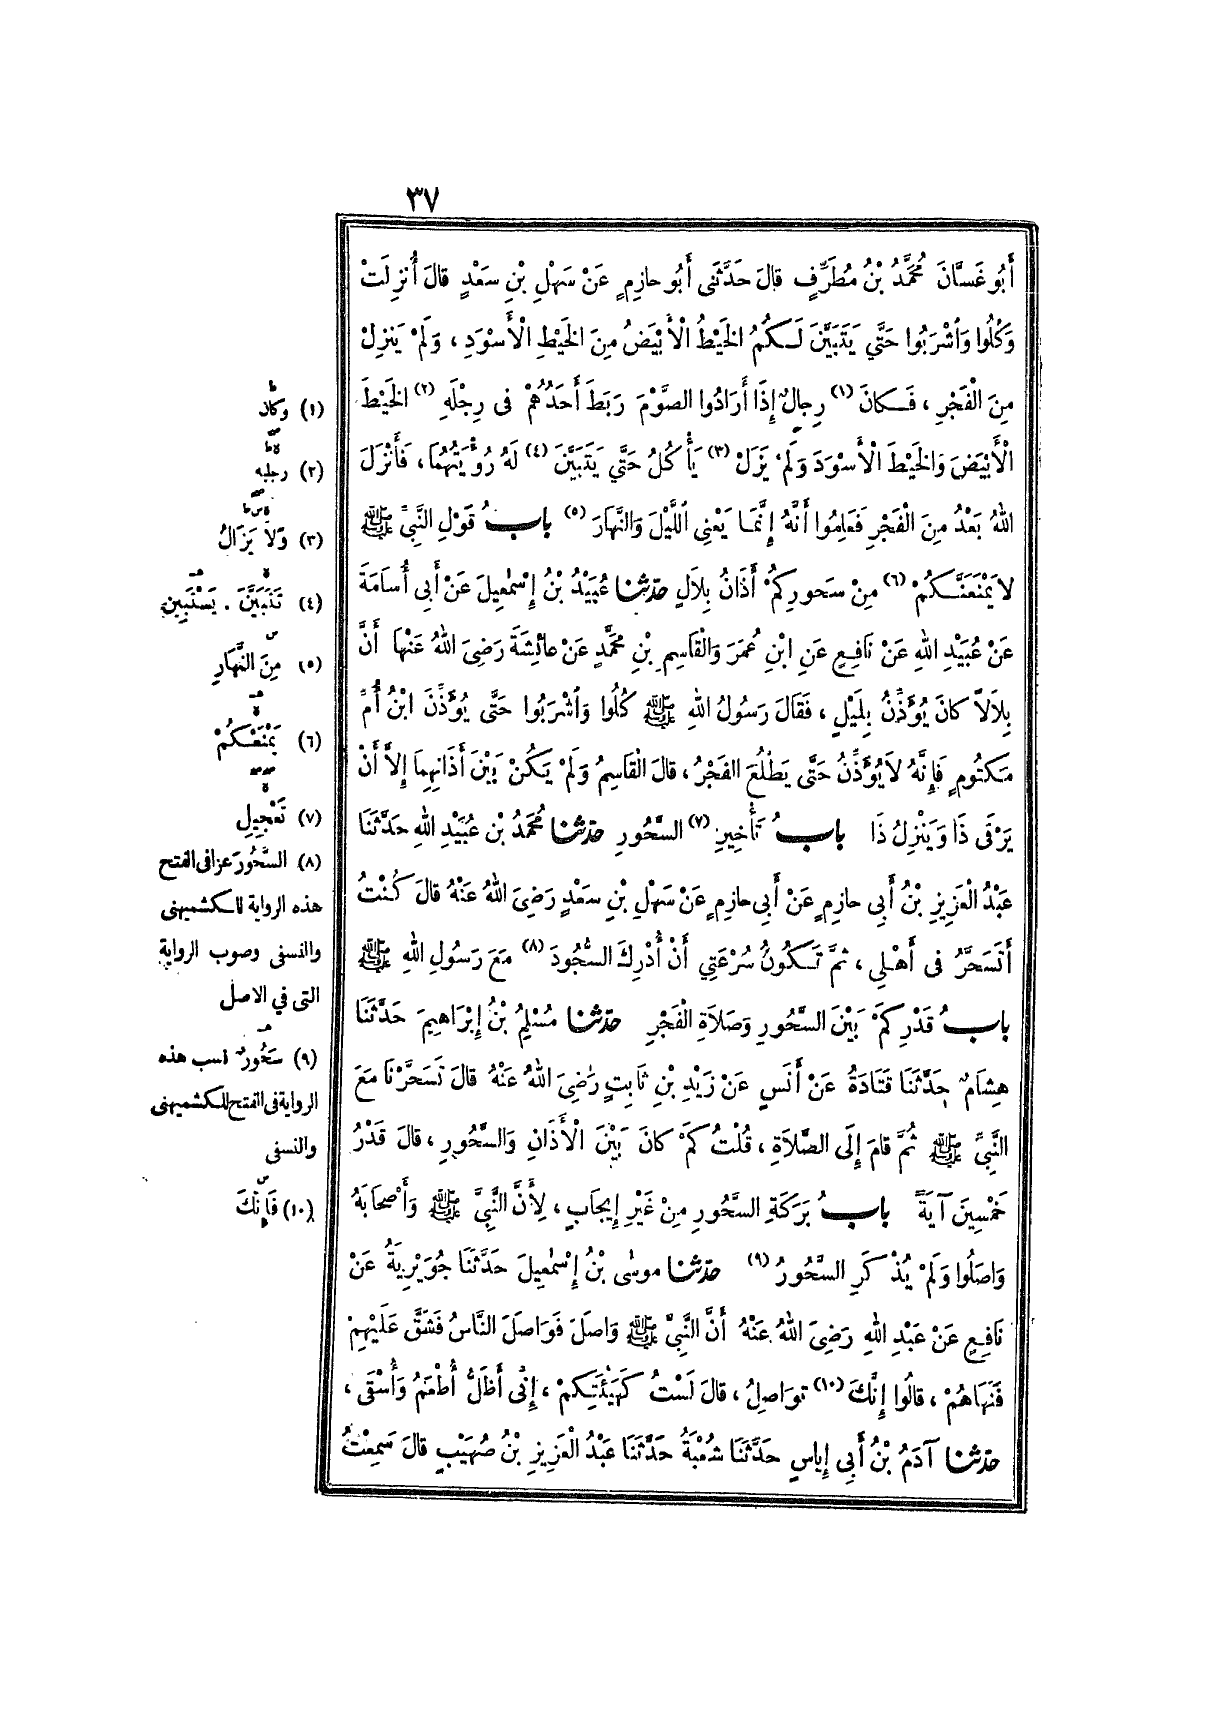 ٣٧
أَبُو غَسَّانَ مُحَمَّدُ بْنُ مُطَرِّفٍ قَالَ حَدَّثَنِي أَبُو حَازِمٍ عَنْ سَهْلِ بْنِ سَعْدٍ قَالَ أُنْزِلَتْ
وَكُلُوا وَٱشْرَبُوا حَتَّى يَتَبَيَّنَ لَكُمُ الخَيْطُ الْأَبْيَضُ مِنَ الخَيْطِ الْأَسْوَدِ ، وَلَمْ يَنْزِلْ
مِنَ الْفَجْرِ ، فَكَانَ (١) رِجالٌ إِذَا أَرَادُوا الصَّوْمَ رَبَطَ أَحَدُهُمْ فى رِجْلِهِ (٢) الخَيْطَ
الْأَبْيَضَ وَالخَيْطَ الْأَسْوَدَ وَلَمْ يَزَلْ (٣) يَأْكُلُ حَتَّى يَتَبَيَّنَ (٤) لَهُ رُؤْيَتُهُمَا ، فَأَنْزَلَ
اللهُ بَعْدُ مِنَ الْفَجْرِ فَعَلِمُوا أَنَّهُ إِنَّمَا يَعْنِى اللَّيْلَ وَالنَّهَارَ (٥) بابُ قَوْلِ النَّبِيِّ ﷺ
لاَ يَمْنَعَنَّكُمْ (٦) مِنْ سَحُورِكُمْ أَذَانُ بِلاَلٍ حدّثنا عُبَيْدُ بْنُ إِسْمٰعِيلَ عَنْ أَبِى أُسَامَةَ
عَنْ عُبَيْدِ اللهِ عَنْ نَافِعٍ عَنِ ابْنِ عُمَرَ وَالْقَاسِمِ بْنِ مُحَمَّدٍ عَنْ عائِشَةَ رَضِيَ اللهُ عَنْهَا أَنَّ
بِلاَلاً كانَ يُؤَذِّنُ بِلَيْلٍ ، فَقَالَ رَسُولُ اللهِ ﷺ كُلُوا وَٱشْرَبُوا حَتَّى يُؤَذِّنَ ابْنُ أُمِّ
مَكْتُومٍ فَإِنَّهُ لاَ يُؤَذِّنُ حَتَّى يَطْلُعَ الفَجْرُ ، قالَ الْقَاسِمُ وَلَمْ يَكُنْ بَيْنَ أَذَانِهِمَا إِلاَّ أَنْ
يَرْقَى ذَا وَيَنْزِلُ ذَا بابُ تَأْخِيرِ (٧) السَّحُورِ حدّثنا مُحَمَّدُ بْنُ عُبَيْدِ اللهِ حَدَّثَنَا
عَبْدُ الْعَزِيزِ بْنُ أَبِى حازِمٍ عَنْ أَبِى حازِمٍ عَنْ سَهْلِ بْنِ سَعْدٍ رَضِىَ اللهُ عَنْهُ قالَ كُنْتُ
أَتَسَحَّرُ فى أَهْلِى ، ثُمَّ تَكُونُ سُرْعَتِى أَنْ أُدْرِكَ السُّجُودَ (٨) مَعَ رَسُولِ اللهِ ﷺ
بابُ قَدْرِ كَمْ بَيْنَ السَّحُورِ وَصَلاَةِ الْفَجْرِ حدّثنا مُسْلِمُ بْنُ إِبْرَاهِيمَ حَدَّثَنَا
هِشَامٌ حَدَّثَنَا قَتَادَةُ عَنْ أَنَسٍ عَنْ زَيْدِ بْنِ ثَابِتٍ رَضِىَ اللهُ عَنْهُ قالَ تَسَحَّرْنَا مَعَ
النَّبِيِّ ﷺ ثُمَّ قامَ إِلَى الصَّلاَةِ ، قُلْتُ كَمْ كانَ بَيْنَ الْأَذَانِ وَالسَّحُورِ ، قالَ قَدْرُ
خَمْسِينَ آيَةً بابُ بَرَكَةِ السَّحُورِ مِنْ غَيْرِ إِيجَابٍ ، لِأَنَّ النَّبِيَّ ﷺ وَأَصْحَابَهُ
وَاصَلُوا وَلَمْ يُذْكَرِ السَّحُورُ (٩) حدّثنا موسٰى بْنُ إِسْمٰعِيلَ حَدَّثَنَا جُوَيْرِيَةُ عَنْ
نَافِعٍ عَنْ عَبْدِ اللهِ رَضِىَ اللهُ عَنْهُ أَنَّ النَّبِيَّ ﷺ وَاصَلَ فَوَاصَلَ النَّاسُ فَشَقَّ عَلَيْهِمْ
فَنَهَاهُمْ ، قالُوا إِنَّكَ (١٠) تُوَاصِلُ ، قالَ لَسْتُ كَهَيْئَتِكُمْ ، إِنِّى أَظَلُّ أُطْعَمُ وَأُسْقَى ،
حدّثنا آدَمُ بْنُ أَبِى إِيَاسٍ حَدَّثَنَا شُعْبَةُ حَدَّثَنَا عَبْدُ الْعَزِيزِ بْنُ صُهَيْبٍ قالَ سَمِعْتُ
(١) وكان
(٢) رجليه
(٣) وَلاَ يَزَالُ
(٤) تَتَبَيَّنَ . يَسْتَبِين
(٥) مِنَ النَّهَارِ
(٦) يَمْنَعْكُمْ
(٧) تَعْجِيلِ
(٨) السَّحُورَ عزا فى الفتح
هذه الرواية للكشميهنى
والنسفى وصوب الرواية
التى في الاصل
(٩) سَحُورٌ نسب هذه
الرواية فى الفتح للكشميهنى
والنسفى
(١٠) فَإِنَّكَ